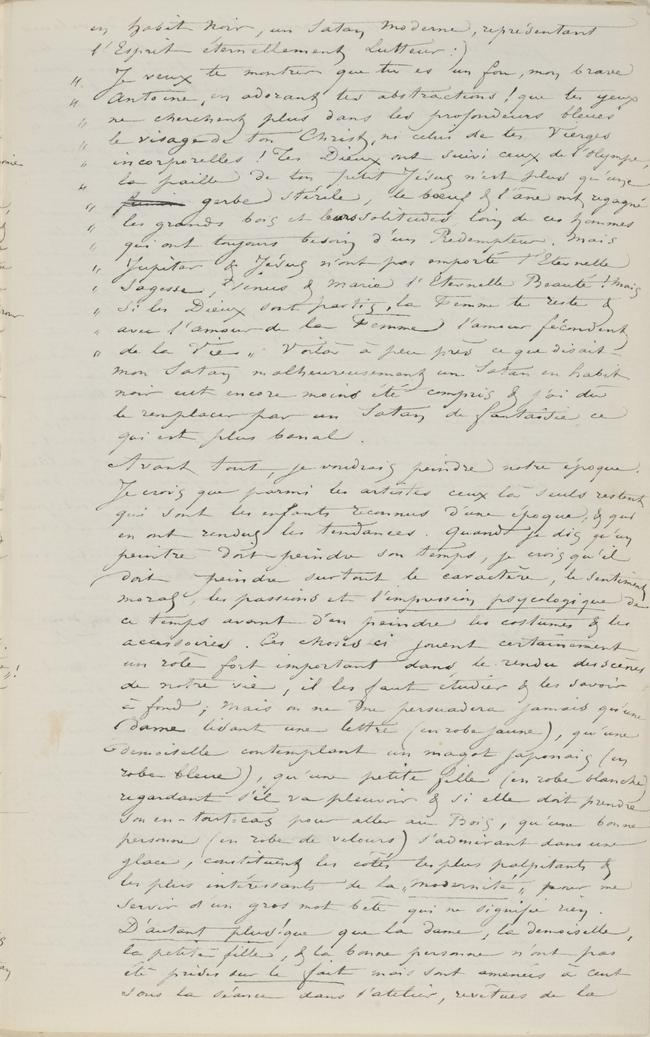 en habit Noir, un Satan Moderne, représentant
l'Esprit éternellement Lutteur :)
" Je veux te montrer que tu es un fou, mon brave
" Antoine, en adorant tes abstractions ! que tes yeux
" ne cherchent plus dans les profondeurs bleues
" le visage de ton Christ, ni celui de tes Vierges
" incorporelles ! Tes Dieux ont suivi ceux de l'Olympe,
" la paille de ton petit Jésus n'est plus qu'une
" gerbe stérile, le bœuf & l'âne ont regagné
" les grands bois et leurs solitudes loin de ces hommes
" qui ont toujours besoin d'un Rédempteur. Mais
" Jupiter & Jésus n'ont pas emporté l'Eternelle
" Sagesse, Vénus & Maria l'Eternelle Beauté ! Mais
" Si les Dieux sont partis, la Femme te reste &
" avec l'amour de la Femme l'amour fécondant
" de la Vie " Voilà à peu près ce que disait
mon Satan malheureusement un Satan en habit
noir eut encore moins été compris & j'ai dû
le remplacer par un Satan de fantaisie ce
qui est plus banal.
Avant tout, je voudrais peindre notre époque.
Je crois que parmi les artistes ceux là seuls restent
qui sont les enfants reconnus d'une époque, & qui
en ont rendus les tendances. Quand je dis qu'un
peintre doit peindre son temps, je crois qu'il
doit peindre surtout le caractère, le sentiment
moral, les passions et l'impression psycologique de
ce temps avant d'en peindre les costumes & les
accessoires. Ces choses ci jouent certainement
un rôle fort important dans le rendu des scènes
de notre vie, il les faut étudier & les savoir
à fond ; mais on ne me persuadera jamais qu'une
dame lisant une lettre (en robe jaune), qu'une
demoiselle contemplant un magot japonais (en
robe bleue), qu'une petite fille (en robe blanche)
regardant s'il va pleuvoir & si elle doit prendre
son en-tout-cas pour aller au Bois, qu'une bonne
personne (en robe de velours) s'admirant dans une
glace, constituent les côtés les plus palpitants &
les plus intéressants de la "modernité", pour me
servir d'un gros mot bête qui ne signifie rien.
D'autant plus ! que que la dame, la demoiselle,
la petite fille, & la bonne personne n'ont pas
été prises sur le fait mais sont amenées à cent
sous la séance dans l'atelier, revêtues de la